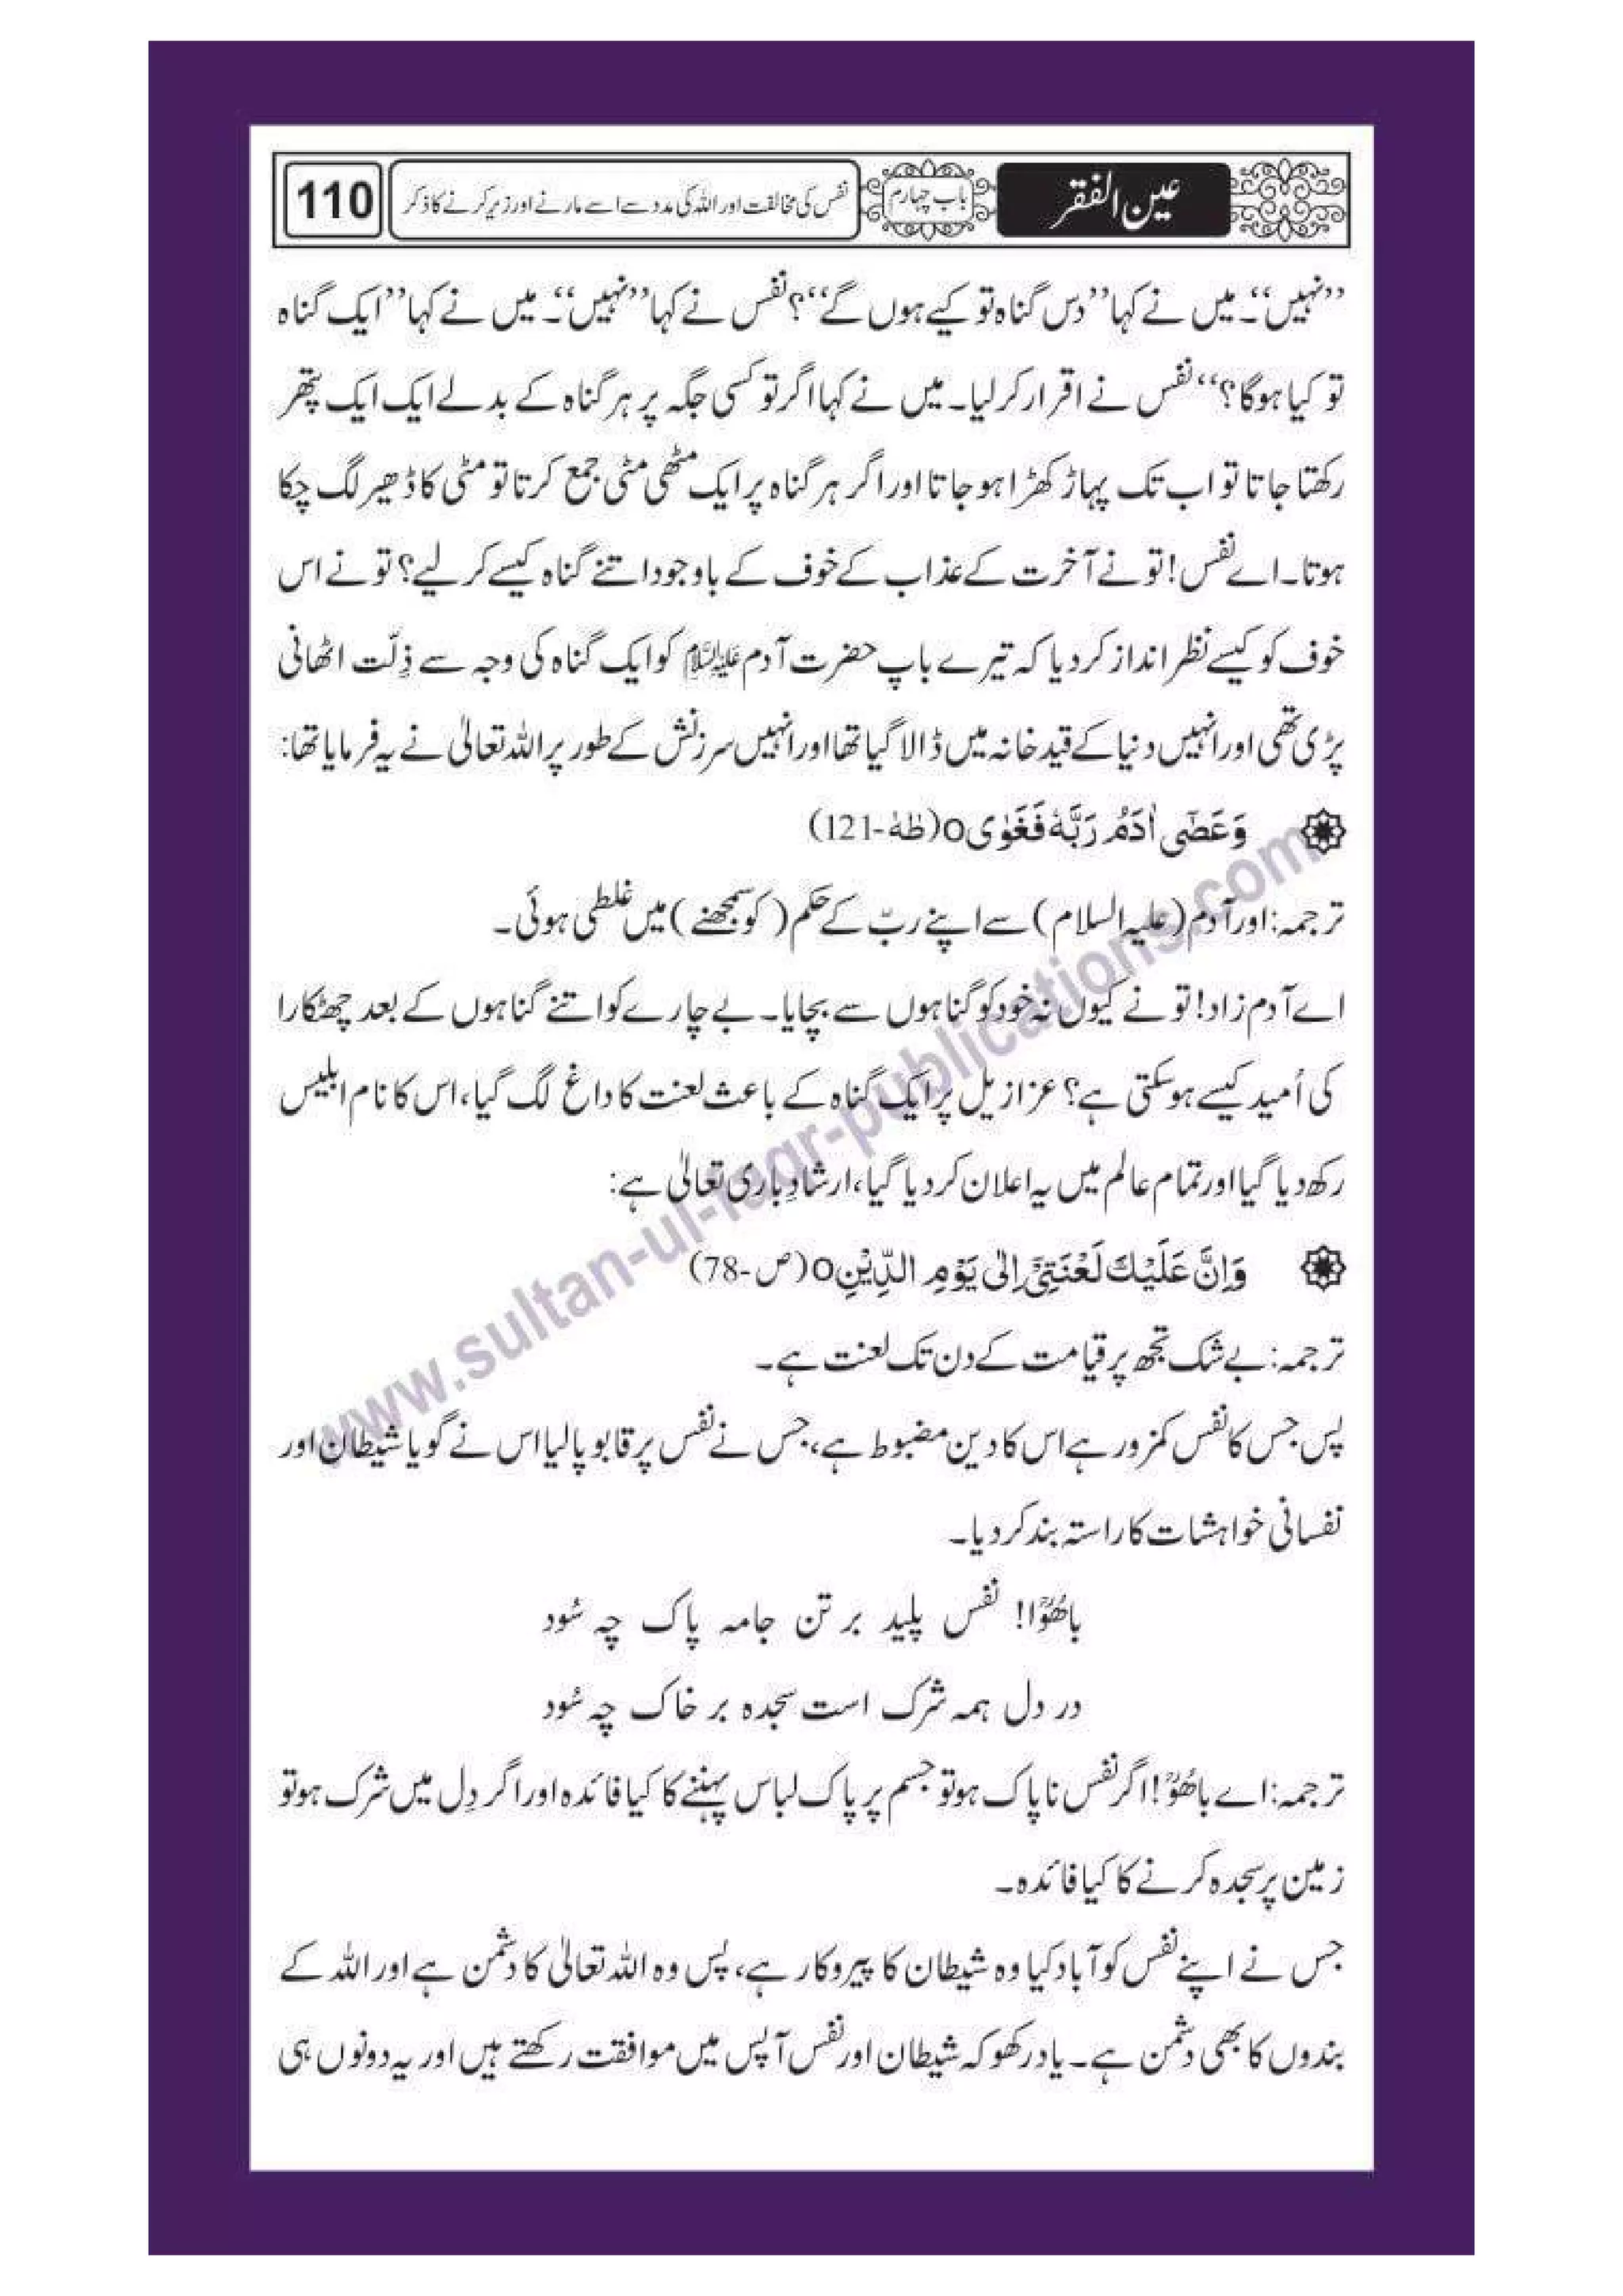 عین الفقر
باب چہارم
نفس کی مخالفت اور اللہ کی مدد سے اسے مارنے اور زیر کرنے کا ذکر
110
’’نہیں‘‘۔ میں نے کہا ’’دس گناہ تو کیے ہوں گے‘‘؟ نفس نے کہا ’’نہیں‘‘۔ میں نے کہا ’’ایک گناہ
تو کیا ہوگا؟‘‘ نفس نے اقرار کر لیا۔ میں نے کہا اگر تو کسی جگہ پر ہر گناہ کے بدلے ایک ایک پتھر
رکھتا جاتا تو اب تک پہاڑ کھڑا ہو جاتا اور اگر ہر گناہ پر ایک مٹھی مٹی جمع کرتا تو مٹی کا ڈھیر لگ چکا
ہوتا۔ اے نفس! تو نے آخرت کے عذاب کے خوف کے باوجود اتنے گناہ کیسے کر لیے؟ تو نے اس
خوف کو کیسے نظر انداز کر دیا کہ تیرے باپ حضرت آدم علیہ السلام کو ایک گناہ کی وجہ سے ذِلّت اٹھانی
پڑی تھی اور انہیں دنیا کے قید خانہ میں ڈالا گیا تھا اور انہیں سرزنش کے طور پر اللہ تعالیٰ نے یہ فرمایا تھا:
وَعَصٰٓی اٰدَمُ رَبَّہٗ فَغَوٰیo (طٰہٰ-121)
ترجمہ: اور آدم (علیہ السلام) سے اپنے ربّ کے حکم (کو سمجھنے) میں غلطی ہوئی۔
اے آدم زاد! تو نے کیوں نہ خود کو گناہوں سے بچایا۔ بے چارے کو اتنے گناہوں کے بعد چھٹکارا
کی اُمید کیسے ہو سکتی ہے؟ عزازیل پر ایک گناہ کے باعث لعنت کا داغ لگ گیا، اس کا نام ابلیس
رکھ دیا گیا اور تمام عالم میں یہ اعلان کر دیا گیا، ارشادِ باری تعالیٰ ہے:
وَاِنَّ عَلَیْکَ لَعْنَتِیْٓ اِلٰی یَوْمِ الدِّیْنِo (ص-78)
ترجمہ: بے شک تجھ پر قیامت کے دن تک لعنت ہے۔
پس جس کا نفس کمزور ہے اس کا دین مضبوط ہے، جس نے نفس پر قابو پا لیا اس نے گویا شیطان اور
نفسانی خواہشات کا راستہ بند کر دیا۔
باھُوؒا! نفس پلید بر تن جامہ پاک چہ سُود
در دل ہمہ شرک است سجدہ بر خاک چہ سُود
ترجمہ: اے باھُوؒ! اگر نفس ناپاک ہو تو جسم پر پاک لباس پہننے کا کیا فائدہ اور اگر دِل میں شرک ہو تو
زمین پر سجدہ کرنے کا کیا فائدہ۔
جس نے اپنے نفس کو آباد کیا وہ شیطان کا پیروکار ہے، پس وہ اللہ تعالیٰ کا دشمن ہے اور اللہ کے
بندوں کا بھی دشمن ہے۔ یاد رکھو کہ شیطان اور نفس آپس میں موافقت رکھتے ہیں اور یہ دونوں ہی
www.sultan-ul-faqr-publications.com